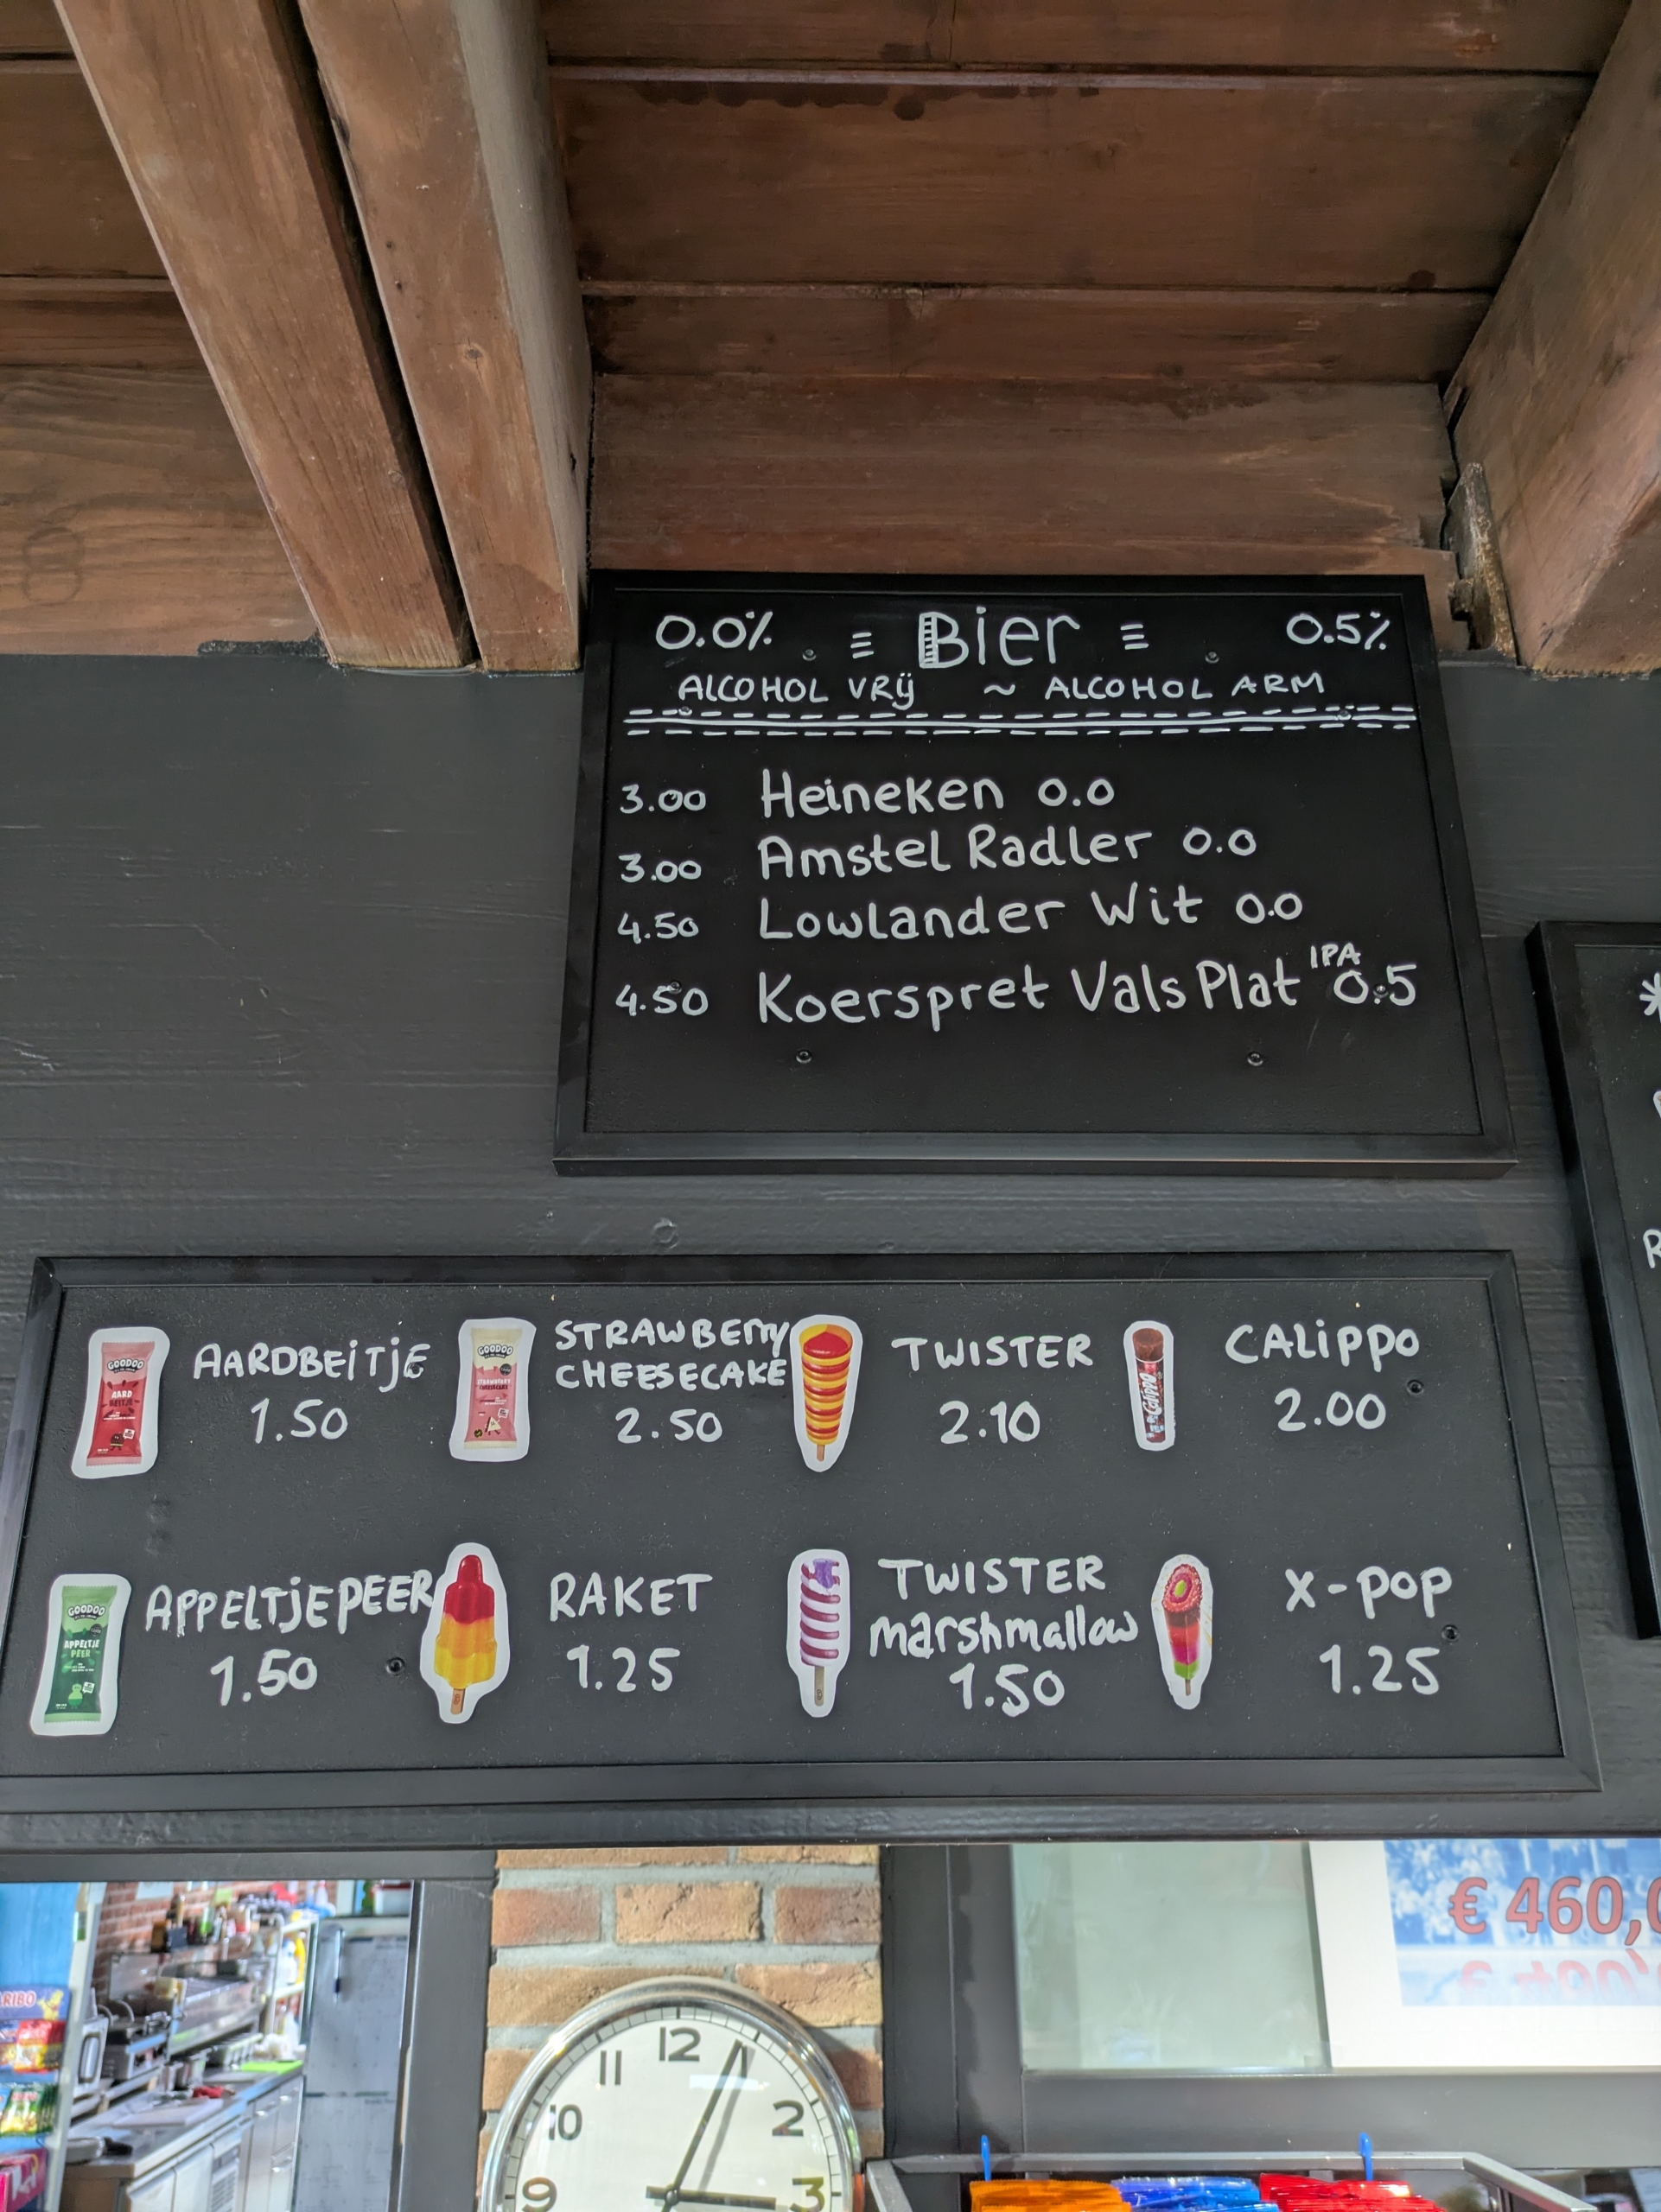 0.0% ≡ Bier ≡ 0.5%
ALCOHOL VRIJ ~ ALCOHOL ARM
3.00 Heineken 0.0
3.00 Amstel Radler 0.0
4.50 Lowlander Wit 0.0
4.50 Koerspret Vals Plat IPA 0.5
AARDBEITJE
1.50
STRAWBERRY
CHEESECAKE
2.50
TWISTER
2.10
CALIPPO
2.00
GOODOO
AARD
BEITJE
GOODOO
STRAWBERRY
CHEESECAKE
Calippo
APPELTJEPEER
1.50
RAKET
1.25
TWISTER
marshmallow
1.50
X-POP
1.25
GOODOO
APPELTJE
PEER
€ 460,0
RIBO
12
11
10
9
2
3